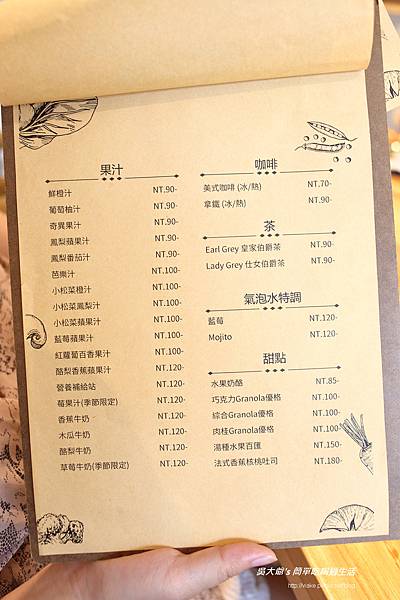 果汁
鮮橙汁 NT.90-
葡萄柚汁 NT.90-
奇異果汁 NT.90-
鳳梨蘋果汁 NT.90-
鳳梨番茄汁 NT.90-
芭樂汁 NT.100-
小松菜橙汁 NT.100-
小松菜鳳梨汁 NT.100-
小松菜蘋果汁 NT.100-
藍莓蘋果汁 NT.100-
紅蘿蔔百香果汁 NT.100-
酪梨香蕉蘋果汁 NT.120-
營養補給站 NT.120-
莓果汁(季節限定) NT.120-
香蕉牛奶 NT.120-
木瓜牛奶 NT.120-
酪梨牛奶 NT.120-
草莓牛奶(季節限定) NT.120-
咖啡
美式咖啡 (冰/熱) NT.70-
拿鐵 (冰/熱) NT.90-
茶
Earl Grey 皇家伯爵茶 NT.90-
Lady Grey 仕女伯爵茶 NT.90-
氣泡水特調
藍莓 NT.120-
Mojito NT.120-
甜點
水果奶酪 NT.85-
巧克力Granola優格 NT.100-
綜合Granola優格 NT.100-
肉桂Granola優格 NT.100-
湯種水果百匯 NT.150-
法式香蕉核桃吐司 NT.180-
吳大爺's 簡單吃喝過生活